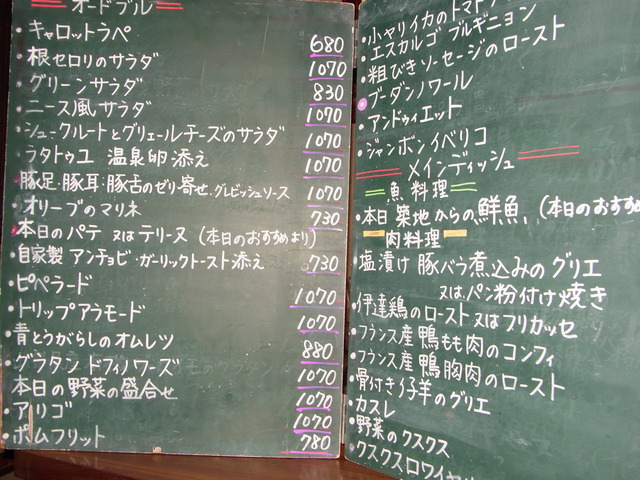 オードブル
・キャロットラペ 680
・根セロリのサラダ 1070
・グリーンサラダ 830
・ニース風サラダ 1070
・シュークルートとグリュエールチーズのサラダ 1070
・ラタトゥユ 温泉卵添え 1070
・豚足・豚耳・豚舌のゼリ寄せ・グレビッシュソース 1070
・オリーブのマリネ 730
・本日のパテ 又はテリーヌ (本日のおすすめより)
・自家製 アンチョビ・ガーリックトースト添え 730
・ピペラード 1070
・トリップアラモード 1070
・青とうがらしのオムレツ 880
・グラタン ドフィノワーズ 1070
・本日の野菜の盛合せ 1070
・アリゴ 1070
・ポムフリット 780
・小ヤリイカのトマト
・エスカルゴ ブルギニョン
・粗びきソーセージのロースト
・ブーダンノワール
・アンドゥイエット
・ジャンボンイベリコ
メインディッシュ
魚料理
・本日 築地からの鮮魚, (本日のおすすめ
肉料理
・塩漬け 豚バラ煮込みのグリエ
又は、パン粉付け焼き
・伊達鶏のロースト又はフリカッセ
・フランス産鴨もも肉のコンフィ
・フランス産鴨胸肉のロースト
・骨付き仔羊のグリエ
・カスレ
・野菜のクスクス
・クスクスロワイヤル